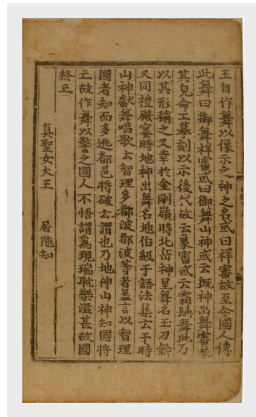 王自作舞以像示之神之名或曰祥審故至今國人傳
此舞曰御舞祥審或曰御舞山神或云旣神出舞審象
其皃命工摹刻以示後代故云象審或云霜髯舞此乃
以其形稱之又幸於金剛嶺時北岳神呈舞名玉刀鈐
又同禮殿宴時地神出舞名地伯級干語法集云于時
山神獻舞唱歌云智理多都波都波等者盖言以智理
國者知而多逃都邑將破云謂也乃地神山神知國將
亡故作舞以警之國人不悟謂爲現瑞耽樂滋甚故國
終亡
眞聖女大王 居陁知